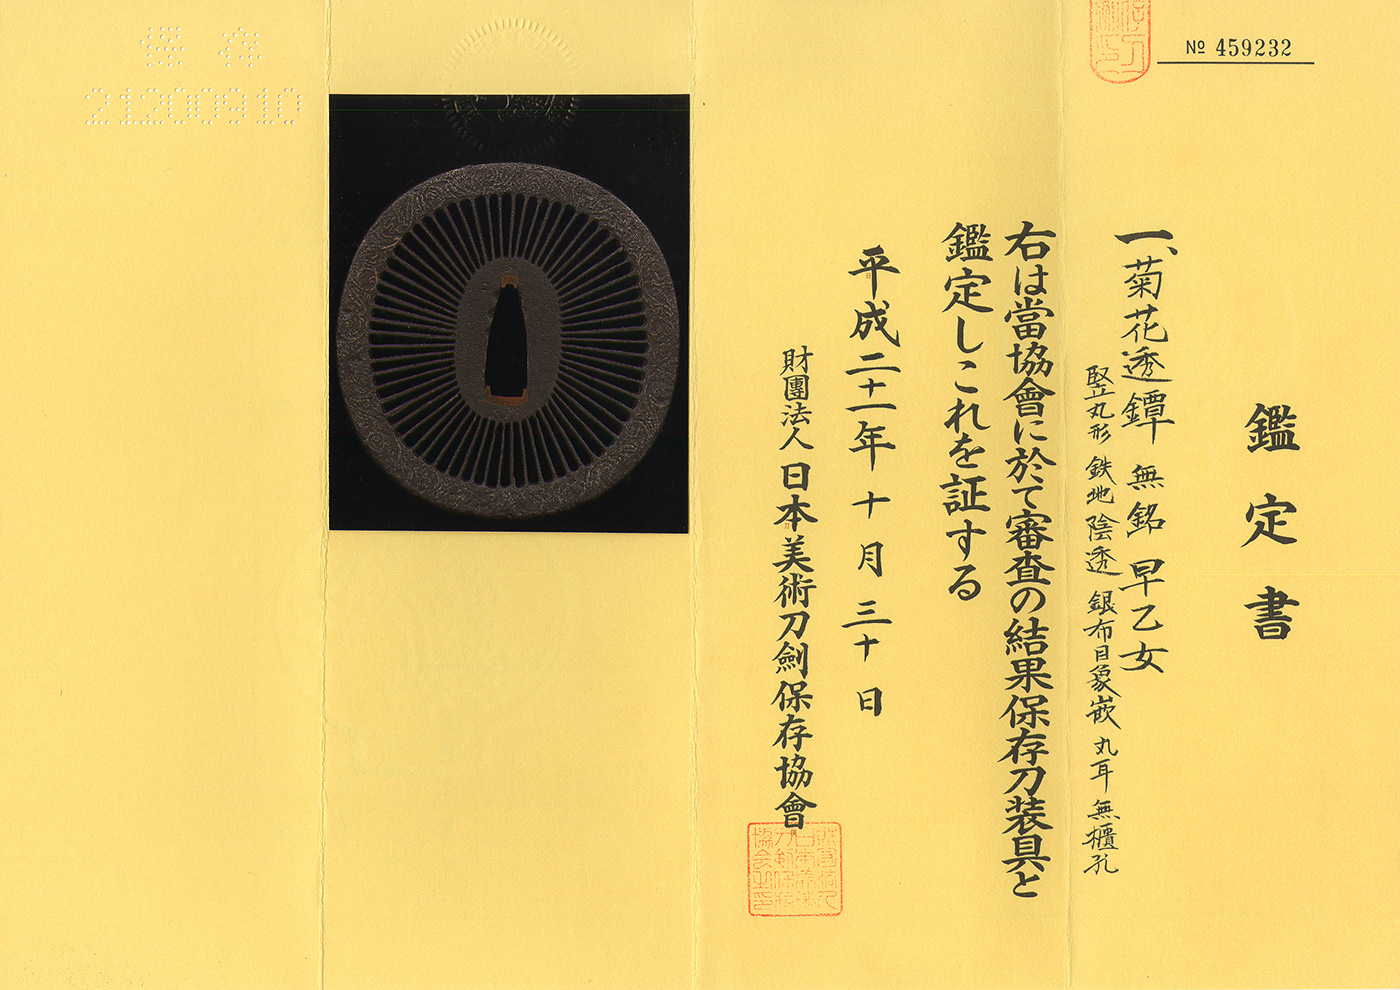 № 459232
鑑定書
一、菊花透鐔 無銘 早乙女
竪丸形 鉄地 陰透 銀布目象嵌 丸耳 無櫃孔
右は當協會に於て審査の結果保存刀装具と
鑑定しこれを証する
平成二十一年十月三十日
財團法人日本美術刀劍保存協會
保存
21200910